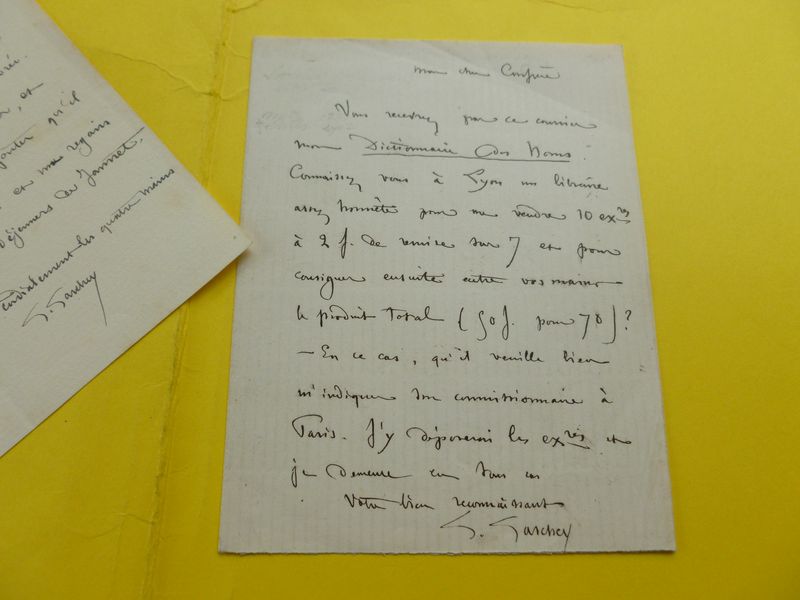 et
qu'il
et ma regains
Déjeuners de Jannet.
cordialement les quatre mains
mon cher Confrère
Vous recevrez par ce courrier
mon Dictionnaire des Noms.
Connaissez vous à Lyon un libraire
assez honnête pour me vendre 10 exres
à 2 f. de remise sur 7 et pour
consigner ensuite entre vos mains
le produit total (50 f. pour 70)?
— En ce cas, qu'il veuille bien
m'indiquer son commissionnaire à
Paris. J'y déposerai les exres et
je demeure en tous cas
Votre bien reconnaissant